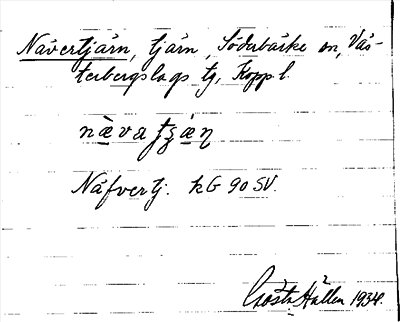 Nävertjärn, tjärn, Söderbärke sn, Väs-
terbergslags tg, Kopp. l.
nä̀vatʒän
Näfvertj. kG 90 SV.
Gösta Hallen 1934.